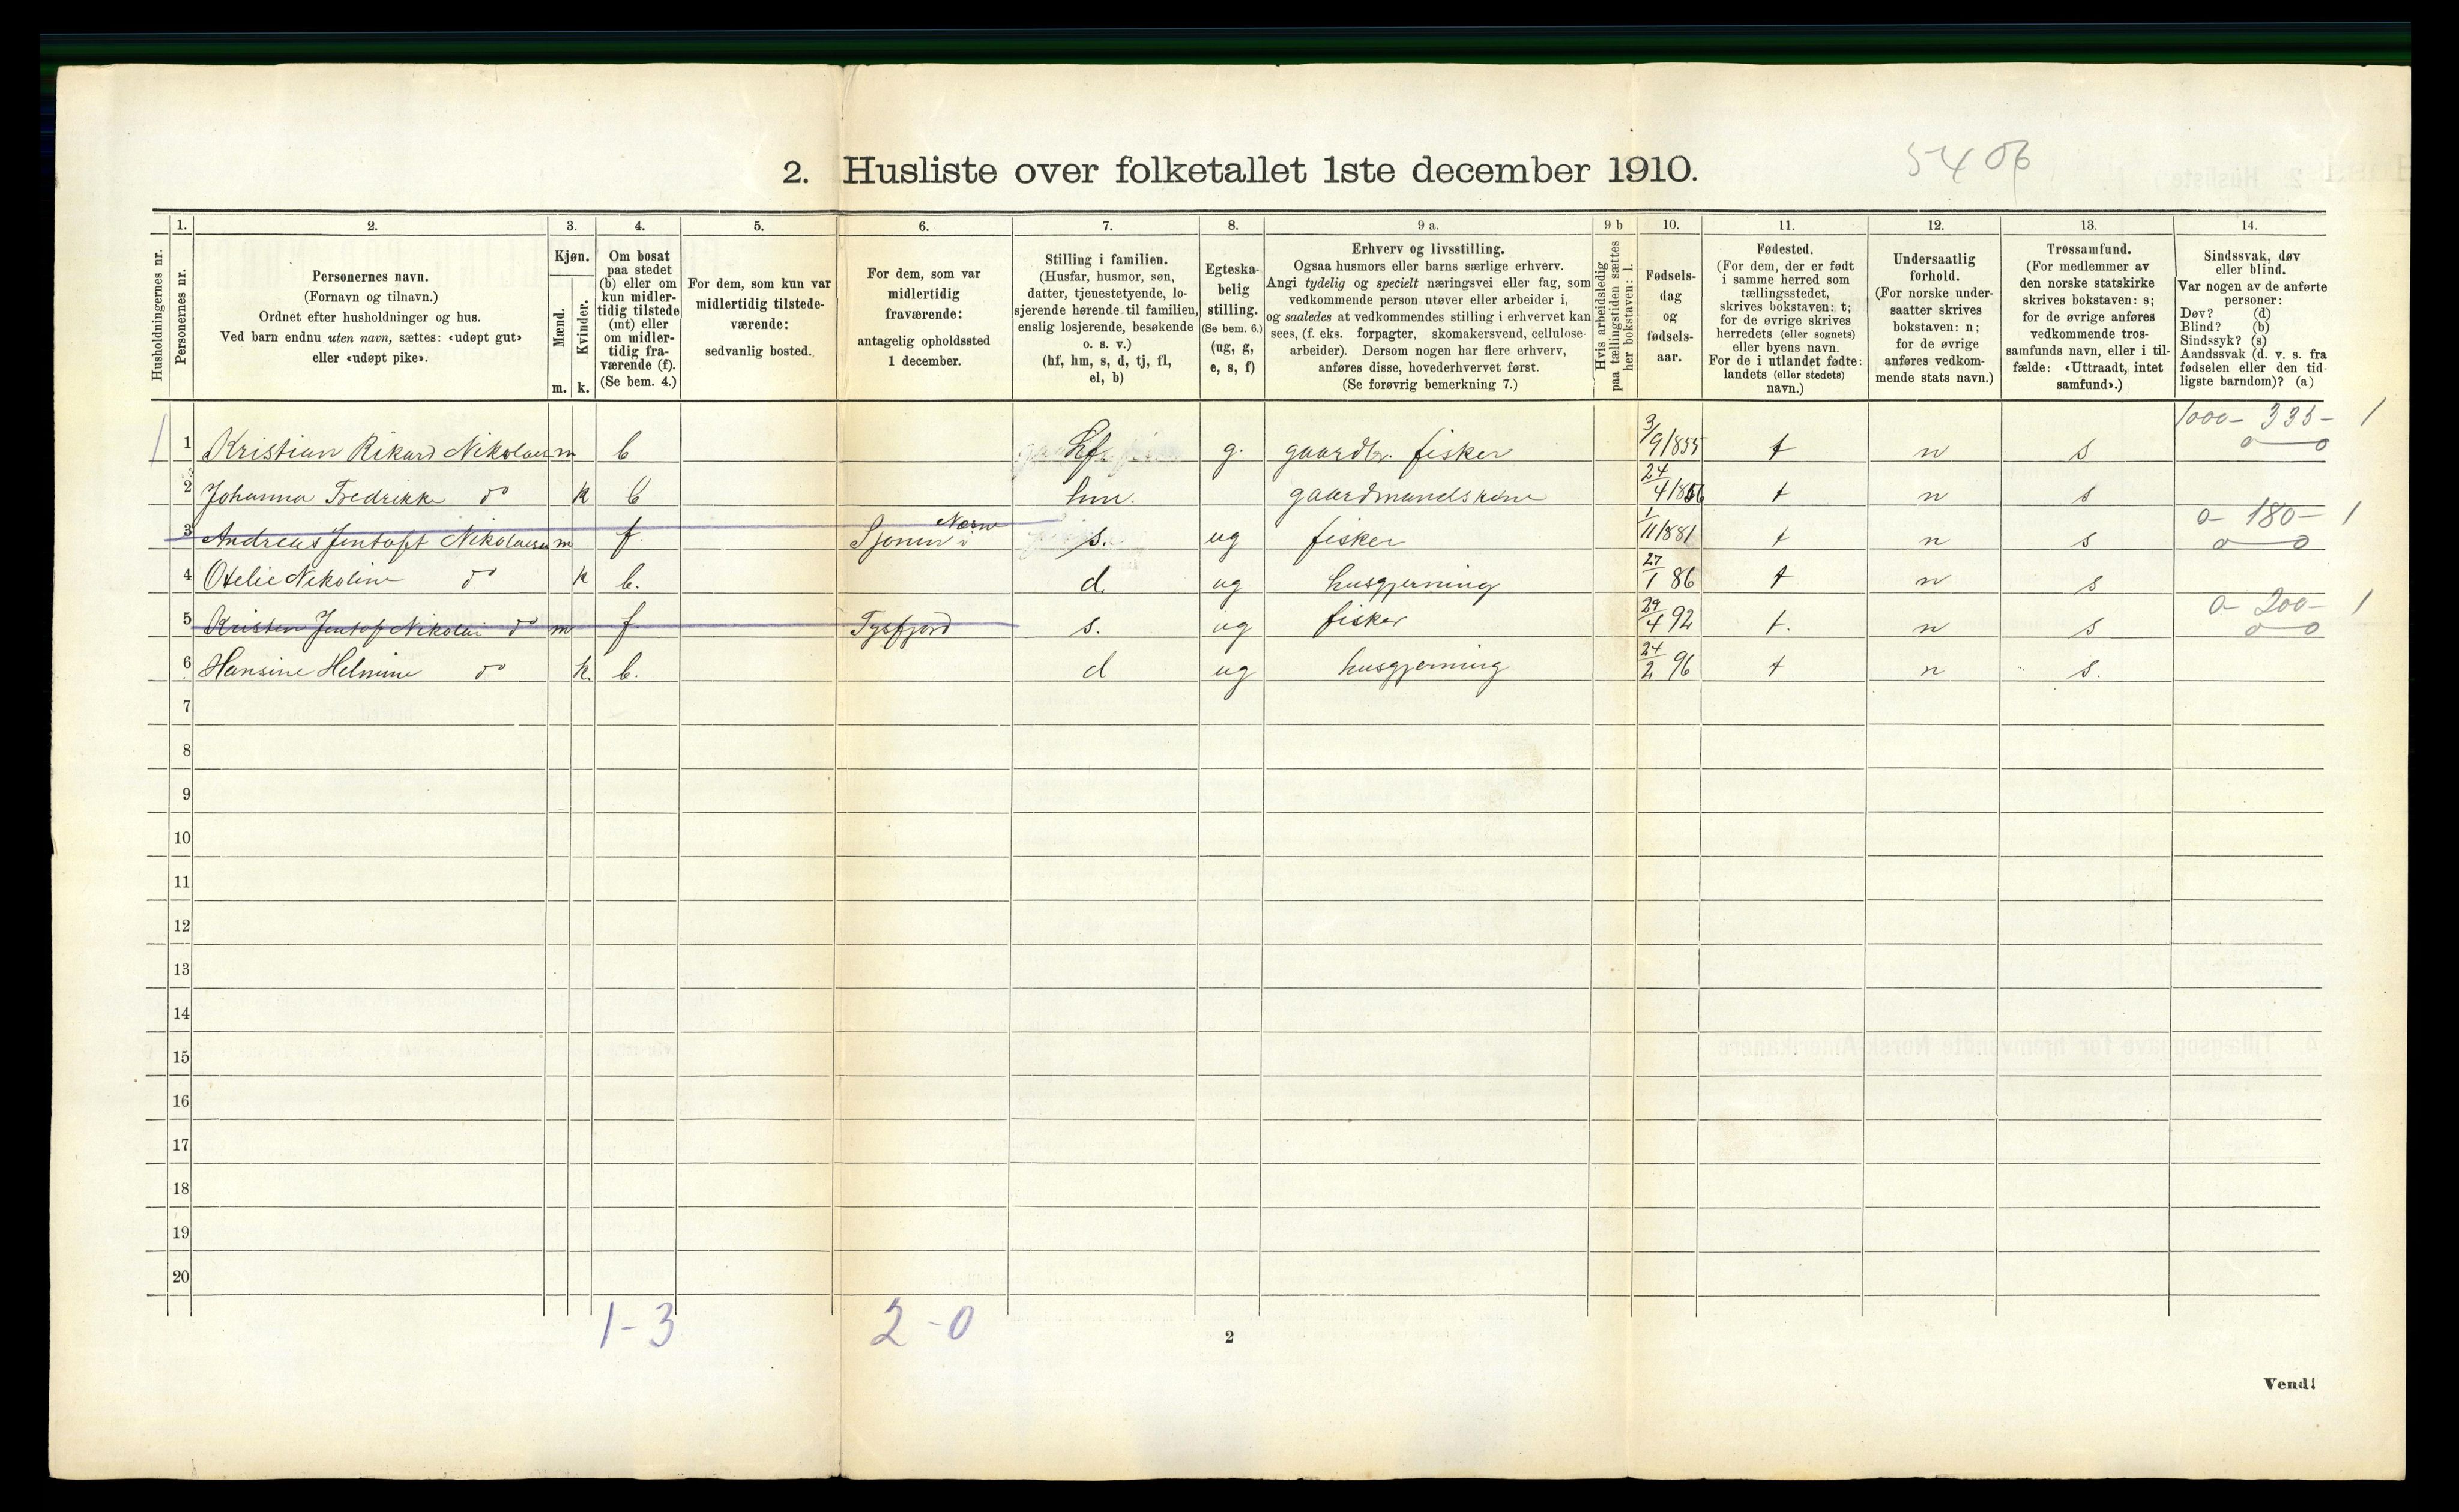 2. Husliste over folketallet 1ste december 1910.
5406
Husholdningernes nr.
1. Personernes nr.
2. Personernes navn.
(Fornavn og tilnavn.)
Ordnet efter husholdninger og hus.
Ved barn endnu uten navn, sættes: «udøpt gut»
eller «udøpt pike».
3. Kjøn.
Mænd. m.
Kvinder. k.
4. Om bosat
paa stedet
(b) eller om
kun midler-
tidig tilstede
(mt) eller
om midler-
tidig fra-
værende (f).
(Se bem. 4.)
5. For dem, som kun var
midlertidig tilstede-
værende:
sedvanlig bosted.
6. For dem, som var
midlertidig
fraværende:
antagelig opholdssted
1 december.
7. Stilling i familien.
(Husfar, husmor, søn,
datter, tjenestetyende, lo-
sjerende hørende til familien,
enslig losjerende, besøkende
o. s. v.)
(hf, hm, s, d, tj, fl,
el, b)
8. Egteska-
belig
stilling.
(Se bem. 6.)
(ug, g,
e, s, f)
9 a. Erhverv og livsstilling.
Ogsaa husmors eller barns særlige erhverv.
Angi tydelig og specielt næringsvei eller fag, som
vedkommende person utøver eller arbeider i,
og saaledes at vedkommendes stilling i erhvervet kan
sees, (f. eks. forpagter, skomakersvend, cellulose-
arbeider). Dersom nogen har flere erhverv,
anføres disse, hovederhvervet først.
(Se forøvrig bemerkning 7.)
9 b Hvis arbeidsledig
paa tællingstiden sættes
her bokstaven: l.
10. Fødsels-
dag
og
fødsels-
aar.
11. Fødested.
(For dem, der er født
i samme herred som
tællingsstedet,
skrives bokstaven: t;
for de øvrige skrives
herredets (eller sognets)
eller byens navn.
For de i utlandet fødte:
landets (eller stedets)
navn.)
12. Undersaatlig
forhold.
(For norske under-
saatter skrives
bokstaven: n;
for de øvrige
anføres vedkom-
mende stats navn.)
13. Trossamfund.
(For medlemmer av
den norske statskirke
skrives bokstaven: s;
for de øvrige anføres
vedkommende tros-
samfunds navn, eller i til-
fælde: «Uttraadt, intet
samfund».)
14. Sindssvak, døv
eller blind.
Var nogen av de anførte
personer:
Døv? (d)
Blind? (b)
Sindssyk? (s)
Aandssvak (d. v. s. fra
fødselen eller den tid-
ligste barndom)? (a)
1000 - 335 - 1
1 1 Kristian Rikard Nikolaisen m b hf. g. gaardbr. fisker 3/9 1855 t n s 0 — 0
2 Johanna Fredrikke do k b hm. gaardmandskone 24/4 1866 t n s
3 Andreas Jentoft Nikolaisen m f Sjonen i Næsne s. ug fisker 1/11 1881 t n s 0 - 180 - 1
0 — 0
4 Otelie Nikoline do k b. d. ug husgjerning 27/1 86 t n s
5 Kristen Jentof Nikolai do m f Tysfjord s. ug fisker 29/4 92 t. n s 0 - 200 - 1
0 — 0
6 Hansine Helmine do k. b. d ug husgjerning 24/2 96 t n s.
7
8
9
10
11
12
13
14
15
16
17
18
19
20
1 - 3 2 - 0
2
Vend!